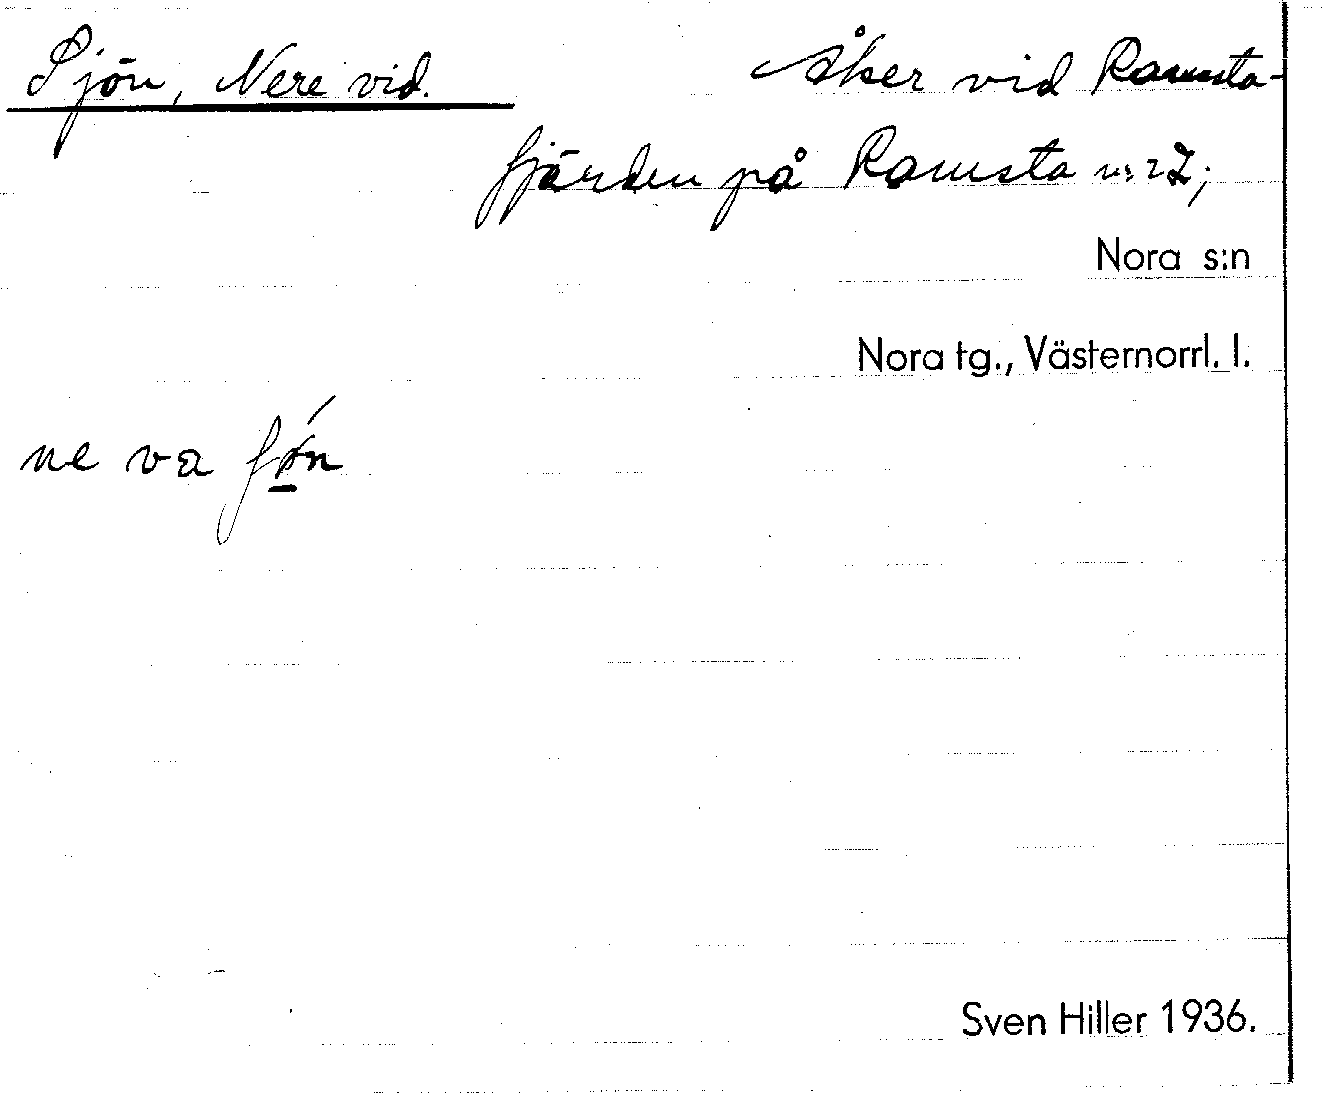 Sjön, Nere vid. Åker vid Ramsta-
fjärden på Ramsta nr 2;
Nora s:n
Nora tg., Västernorrl. l.
ne va ʃǿn
Sven Hiller 1936.